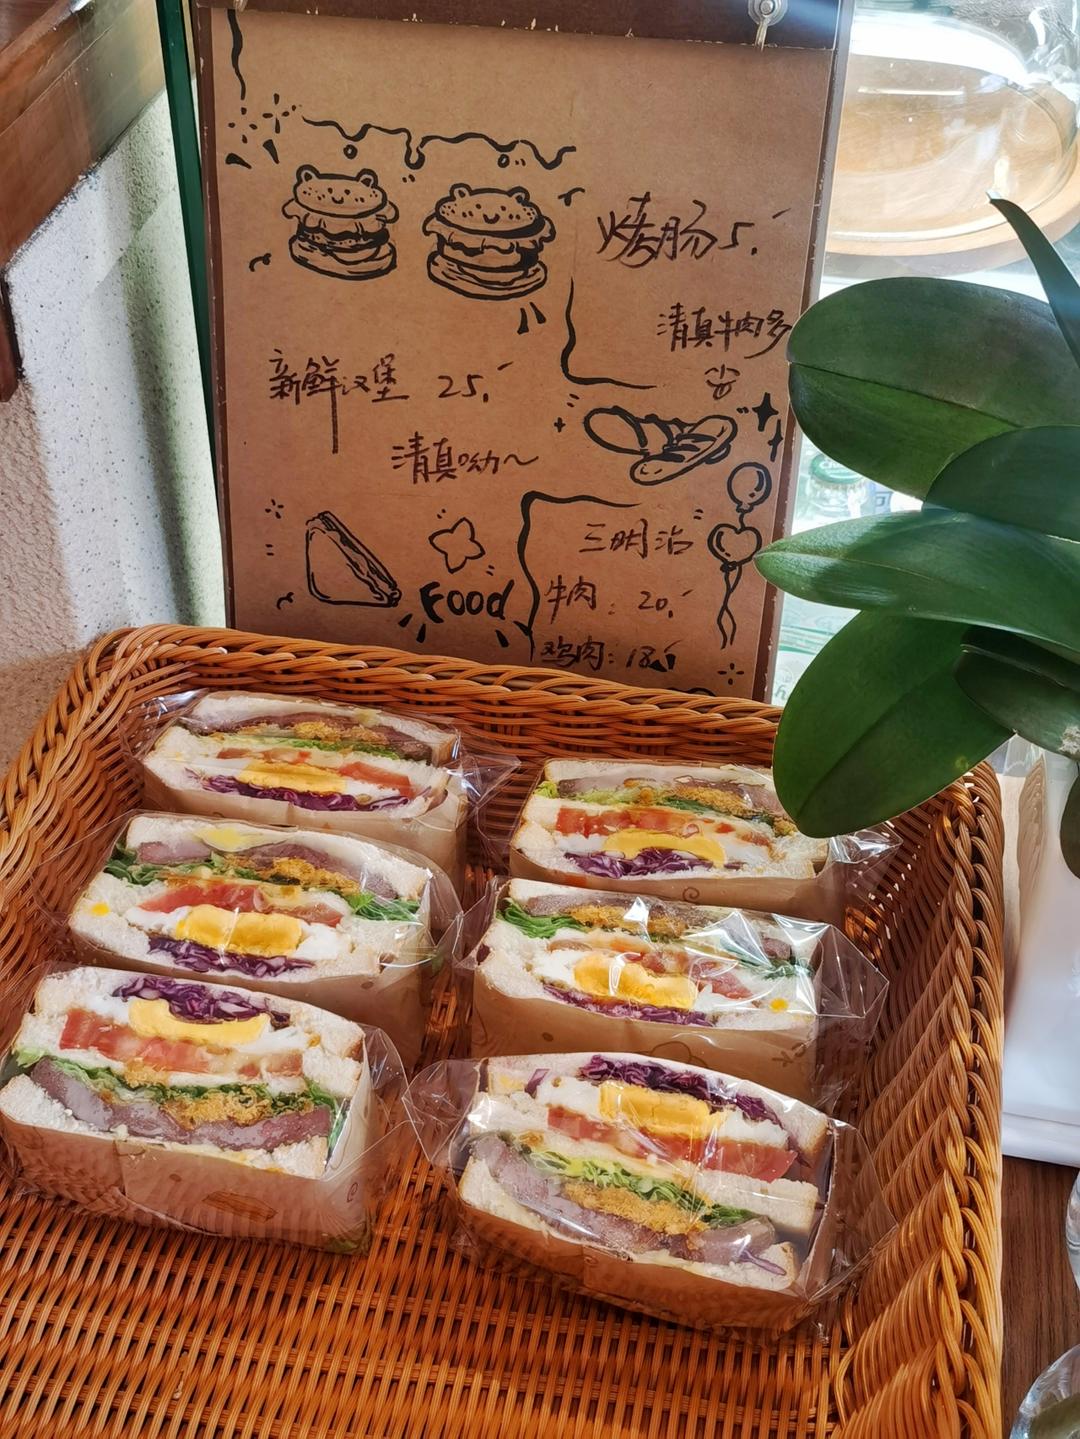 烤肠5.
清真牛肉多
新鲜汉堡 25.
清真呦～
三明治
Food
牛肉: 20.
鸡肉: 18.